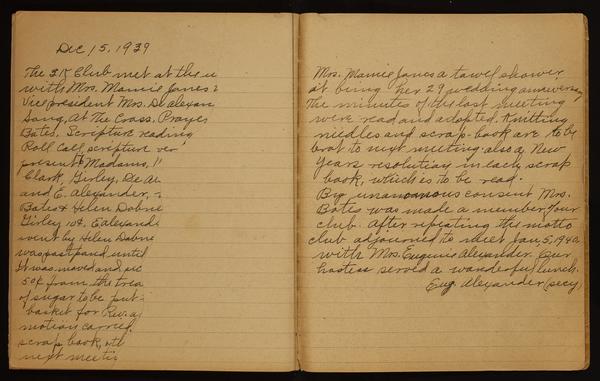 Dec 15, 1939
The 3.K Club met at the
with Mrs. Mamie Jones
Vice president Mrs. De alexan
Song, At The Cross. Prayer
Bates. Scripture reading
Roll Call, scripture ver
present Madams,
Clark, Girley, De
and E. Alexander,
Bates & Helen Dabne
Girley 10¢. Ealexand
went by Helen Dabne
was postpond until
It was moved and
50¢ from the trea
of sugar to be put
basket for Rev.
motion carried
scrap book,
next meetin
Mrs. Mamie Jones a towel shower
it being her 29 wedding anniversary
The minutes of the last meeting
were read and adopted. Knitting
needles and scrap-book are to be
brot to next meeting. also a New
Years resolution in each scrap
book, which is to be read.
By unanomous consent Mrs.
Bates was made a member of our
club. After repeating the motto
club adjourned to meet Jan 5, 1940
with Mrs. Eugenia Alexander. Our
hostess served a wonderful lunch.
Eug. Alexander (secy